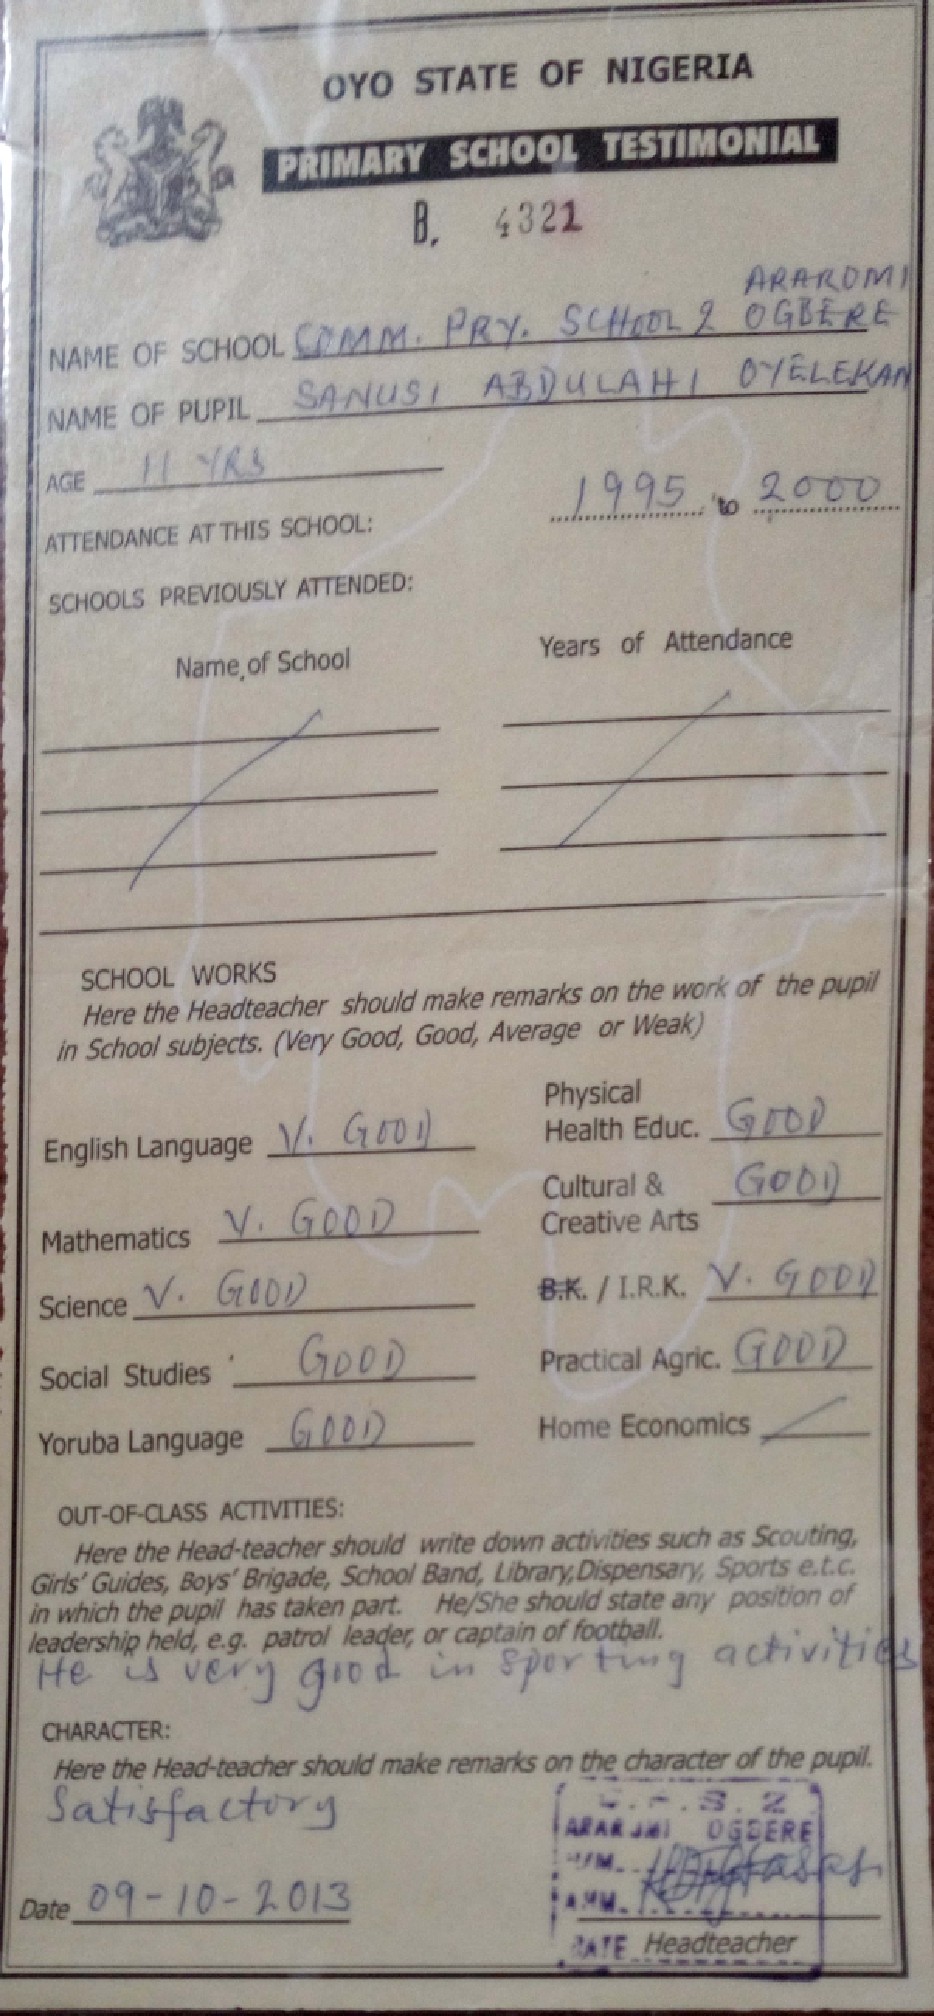 OYO STATE OF NIGERIA
PRIMARY SCHOOL TESTIMONIAL
B. 4321
NAME OF SCHOOL COMM. PRY. SCHOOL 2 ARAROMI OGBERE
NAME OF PUPIL SANUSI ABDULAHI OYELEKAN
AGE 11 YRS
ATTENDANCE AT THIS SCHOOL: 1995 to 2000
SCHOOLS PREVIOUSLY ATTENDED:
Name of School Years of Attendance
SCHOOL WORKS
Here the Headteacher should make remarks on the work of the pupil
in School subjects. (Very Good, Good, Average or Weak)
English Language V. GOOD
Physical
Health Educ. GOOD
Mathematics V. GOOD
Cultural & GOOD
Creative Arts
Science V. GOOD
B.K. / I.R.K. V. GOOD
Social Studies GOOD
Practical Agric. GOOD
Yoruba Language GOOD
Home Economics
OUT-OF-CLASS ACTIVITIES:
Here the Head-teacher should write down activities such as Scouting,
Girls' Guides, Boys' Brigade, School Band, Library,Dispensary, Sports e.t.c.
in which the pupil has taken part. He/She should state any position of
leadership held, e.g. patrol leader, or captain of football.
He is very good in sporting activities
CHARACTER:
Here the Head-teacher should make remarks on the character of the pupil.
Satisfactory
S. 2
ARAROMI OGBERE
Date 09-10-2013
DATE Headteacher